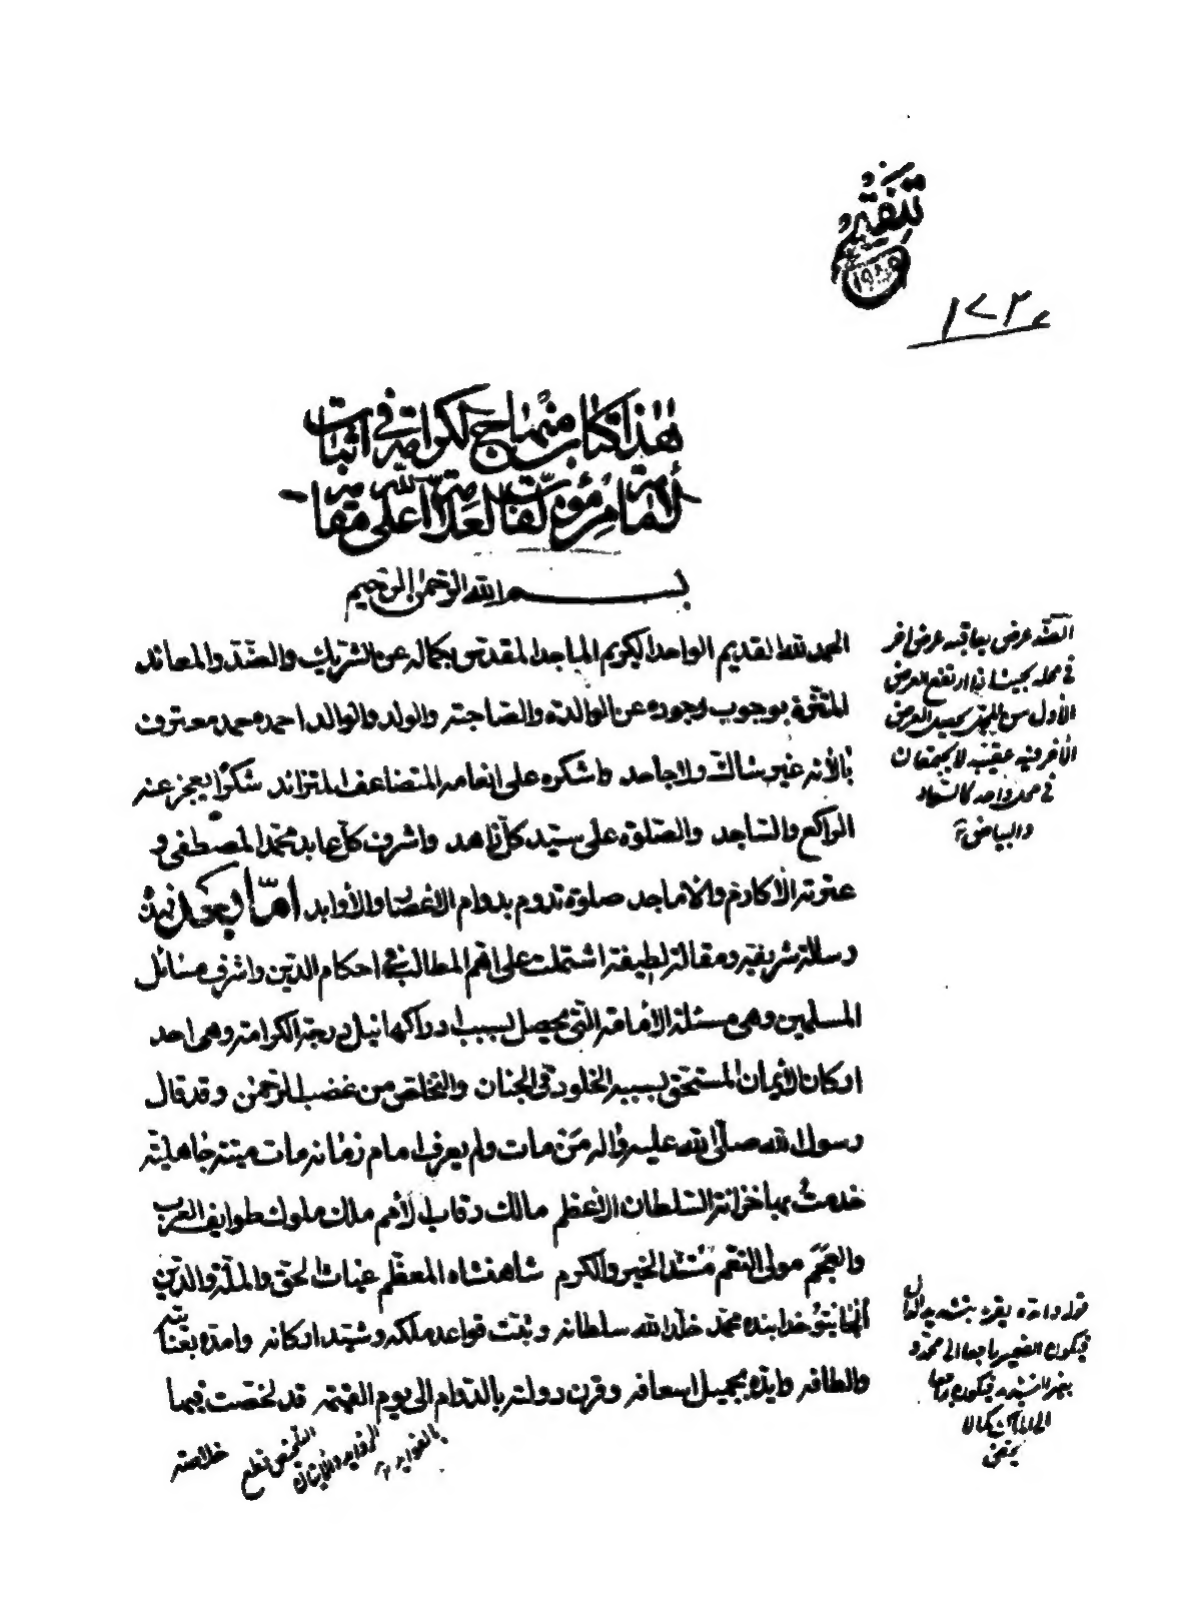 ١٧٣٧
هذا كتاب منهاج الكرامة في اثبات
الامامة من مؤلفات العلامة اعلى الله مقامه
بسم الله الرحمن الرحيم
الحمد لله القديم الواحد الكريم الماجد المقدس بكماله عن الشريك والضد والمعاند
المتنزه بوجوب وجوده عن الوالدة والصاحبة والولد والوالد احمده حمد معترف
بالآئه غير شاك ولا جاحد واشكره على انعامه المتضاعف المتزائد شكرًا يعجز عنه
الراكع والساجد والصلوة على سيد كل زاهد واشرف كل عابد محمد المصطفى و
عترته الاكارم والاماجد صلوة تدوم بدوام الاعصار والاوابد امّا بعد فهذه
رسالة شريفة ومقالة لطيفة اشتملت على اهم المطالب في احكام الدين واشرف مسائل
المسلمين وهى مسئلة الأمامة التي يحصل بسبب ادراكها نيل درجة الكرامة وهى احد
اركان الأيمان المستحق بسببه الخلود في الجنان والتخلص من غضب الرحمن وقد قال
رسول الله صلى الله عليه واله من مات ولم يعرف امام زمانه مات ميتة جاهلية
خدمت بها خزانة السلطان الأعظم مالك رقاب الأمم ملك ملوك طوايف العرب
والعجم مولى النعم مسند الخير والكرم شاهنشاه المعظم غياث الحق والملة والدين
خدابنده محمد خلد الله سلطانه وثبت قواعد ملكه وشيد اركانه وامده بعنايته
والطافه وايده بجميل اسعافه وقرن دولته بالدوام الى يوم القيمة قد لخصت فيها
خلاصة
الضد عرض يعاقبه عرض اخر
في محله بحيث اذا ارتفع العرض
الأول من المحل العرض
الأخر فيه لا يجتمعان
في محل واحد كالسواد
والبياض
قوله وامده يقرء بتشديد الدال
فيكون الضمير راجعا الى محمد و